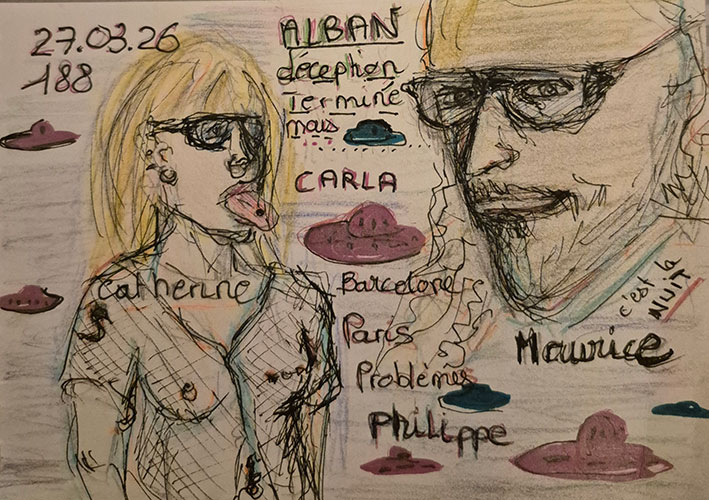 27.03.26
188
ALBAN
déception
Terminé
mais
CARLA
catherine
Barcelone
Paris
Problèmes
Philippe
c'est la
NUIT
Maurice